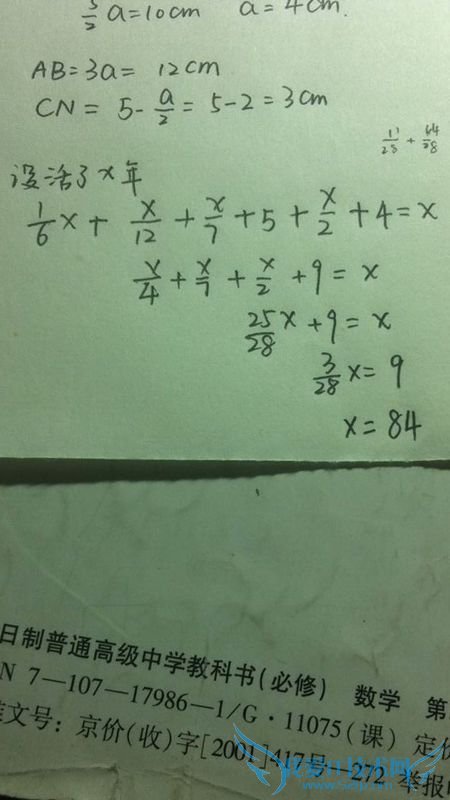 5/2 a=10cm a=4cm.
AB=3a= 12cm
CN = 5-a/2 = 5-2=3cm
11/28 + 64/28
设活了x年
1/6x + x/12 + x/7 +5 + x/2 +4=x
x/4 + x/7 + x/2 +9= x
25/28x +9= x
3/28x= 9
x= 84
日制普通高级中学教科书(必修) 数学 第
N 7—107—17986—1/G·11075(课) 定价
准文号：京价(收)字[2001]417号 272 举报